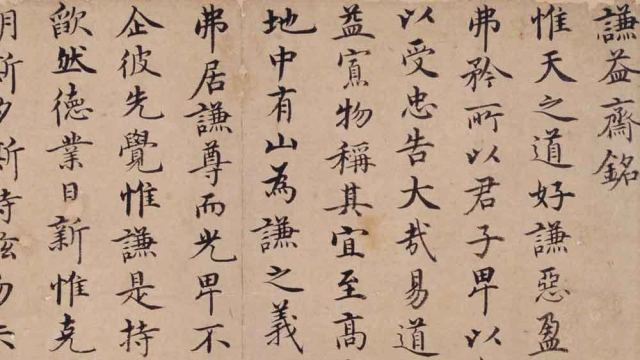 謙益齋銘
惟天之道好謙惡盈
弗矜所以君子卑以
以受忠告大哉易道
益寡物稱其宜至高
地中有山為謙之義
弗居謙尊而光卑不
企彼先覺惟謙是持
歛然德業日新惟克